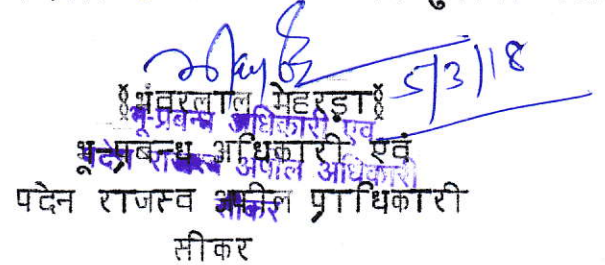 5/3/18
§भंवरलाल मेहरड़ा§
भू-प्रबन्ध अधिकारी एवं
पदेन राजस्व अपील अधिकारी
सीकर
भू-प्रबन्ध अधिकारी एवं
पदेन राजस्व अपील प्राधिकारी
सीकर